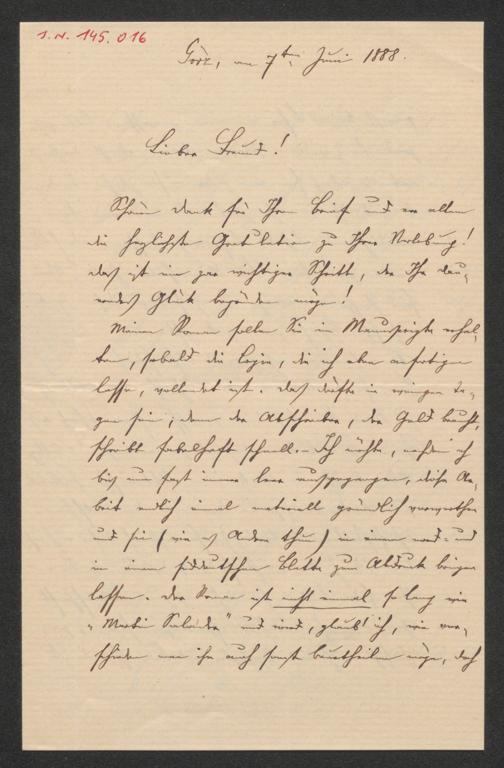 I. N. 145.016
Görz, am 7ten Juni 1888.
Lieber Freund!
Schön Dank für Ihren Brief und vor allem
die herzlichste Gratulation zu Ihrer Verlobung!
Das ist ein gar wichtiger Schritt, der Ihr dau-
erndes Glück begründen möge!
Meinen Roman sollen Sie im Manuskripte erhal-
ten, sobald die Copie, die ich eben anfertigen
lasse, vollendet ist. Das dürfte in wenigen Ta-
gen sein; denn der Abschreiber, der Geld braucht,
schreibt fabelhaft schnell. – Ich möchte, nachdem ich
bis nun fast immer leer ausgegangen, diese Ar-
beit endlich einmal materiell gründlich verwerthen
und sie (wie es Andere thun) in einem nord- und
in einem süddeutschen Blatte zum Abdruck bringen
lassen. Der Roman ist nicht einmal so lang wie
"Martin Salander" und wird, glaub' ich, wie ver-
schieden man ihn auch sonst beurtheilen möge, doch